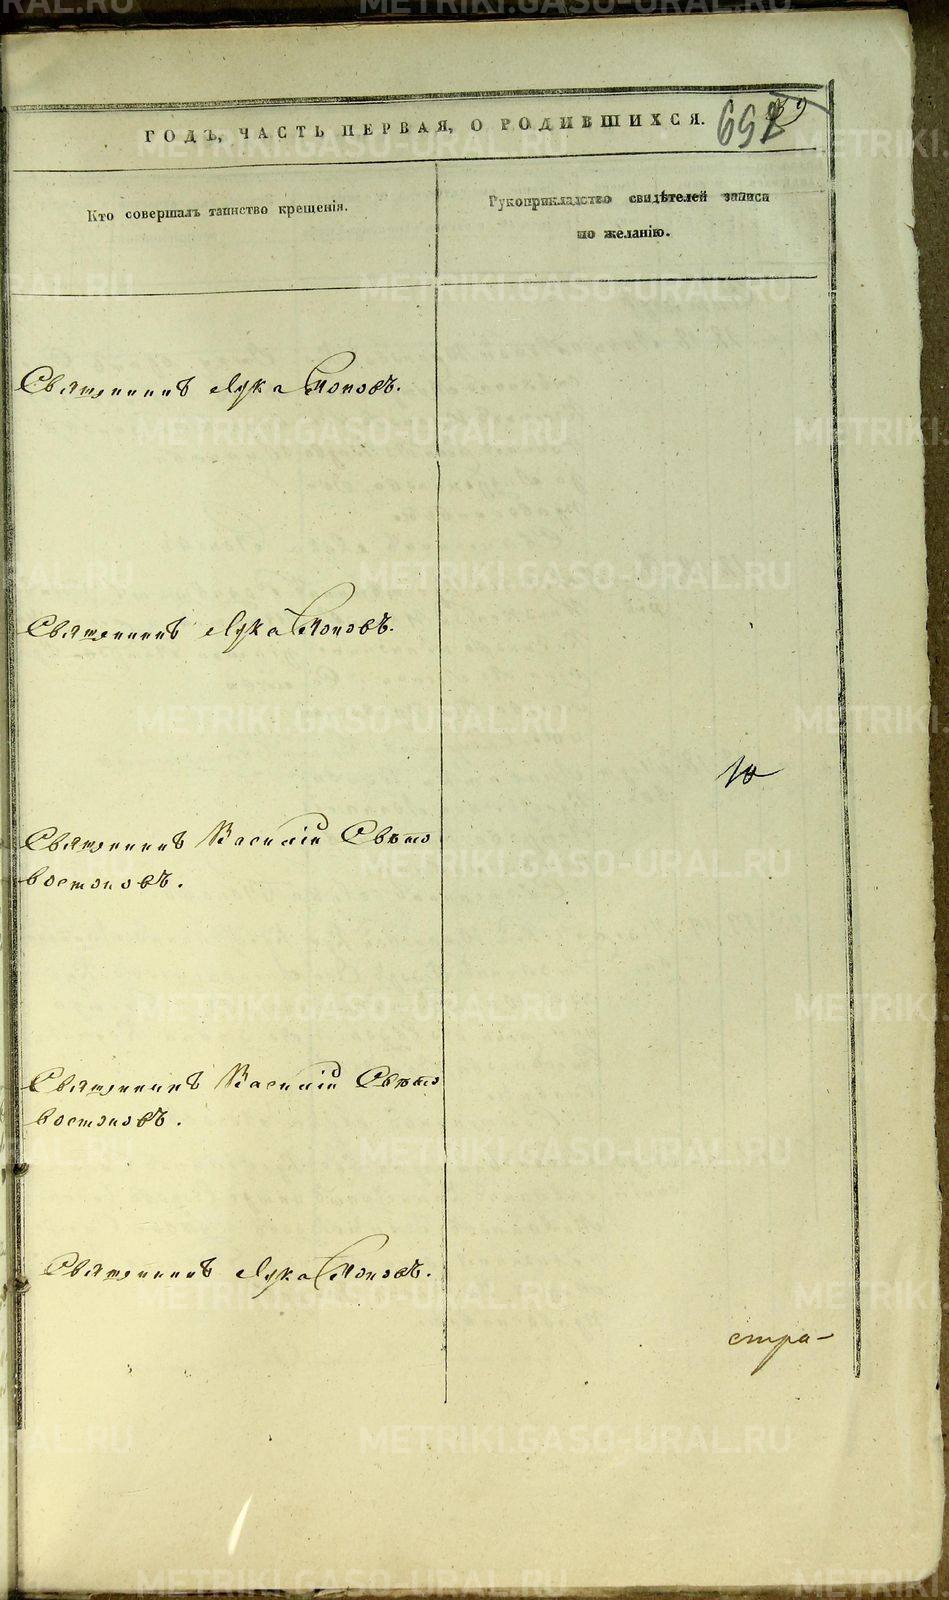 ГОДЪ, ЧАСТЬ ПЕРВАЯ, О РОДИВШИХСЯ.
Кто совершалъ таинство крещенія.
Рукоприкладство свидѣтелей записи
по желанію.
Священникъ Лука Поповъ.
Священникъ Лука Поповъ.
Священникъ Василій Свѣто
востоковъ.
Священникъ Василій Свѣто
востоковъ.
Священникъ Лука Поповъ.
стра-
METRIKI.GASO-URAL.RU